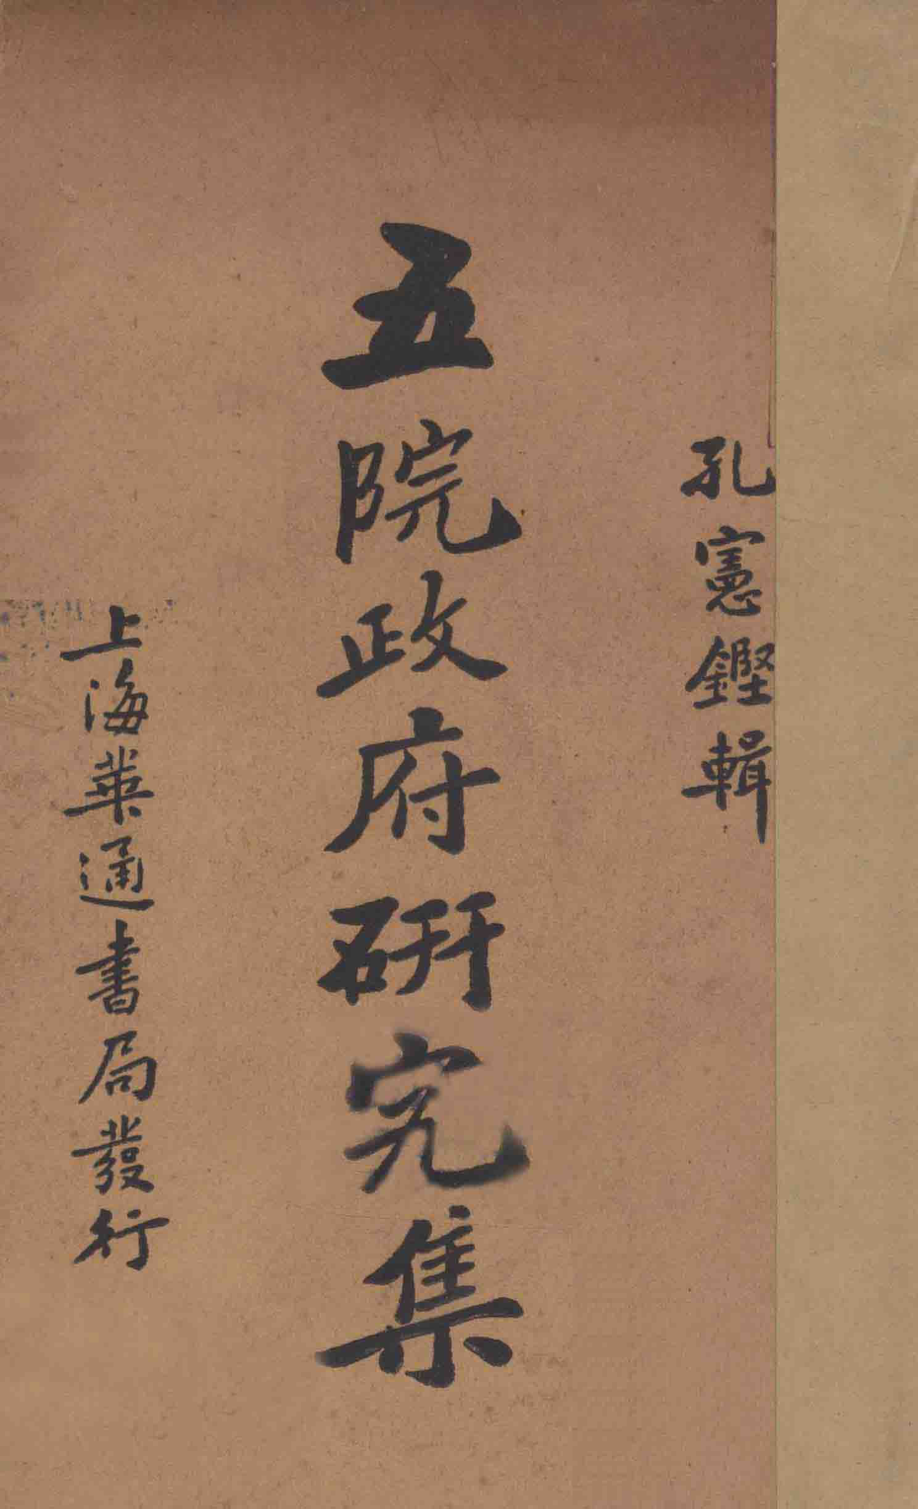 孔憲鏗輯
五院政府研究集
上海華通書局發行